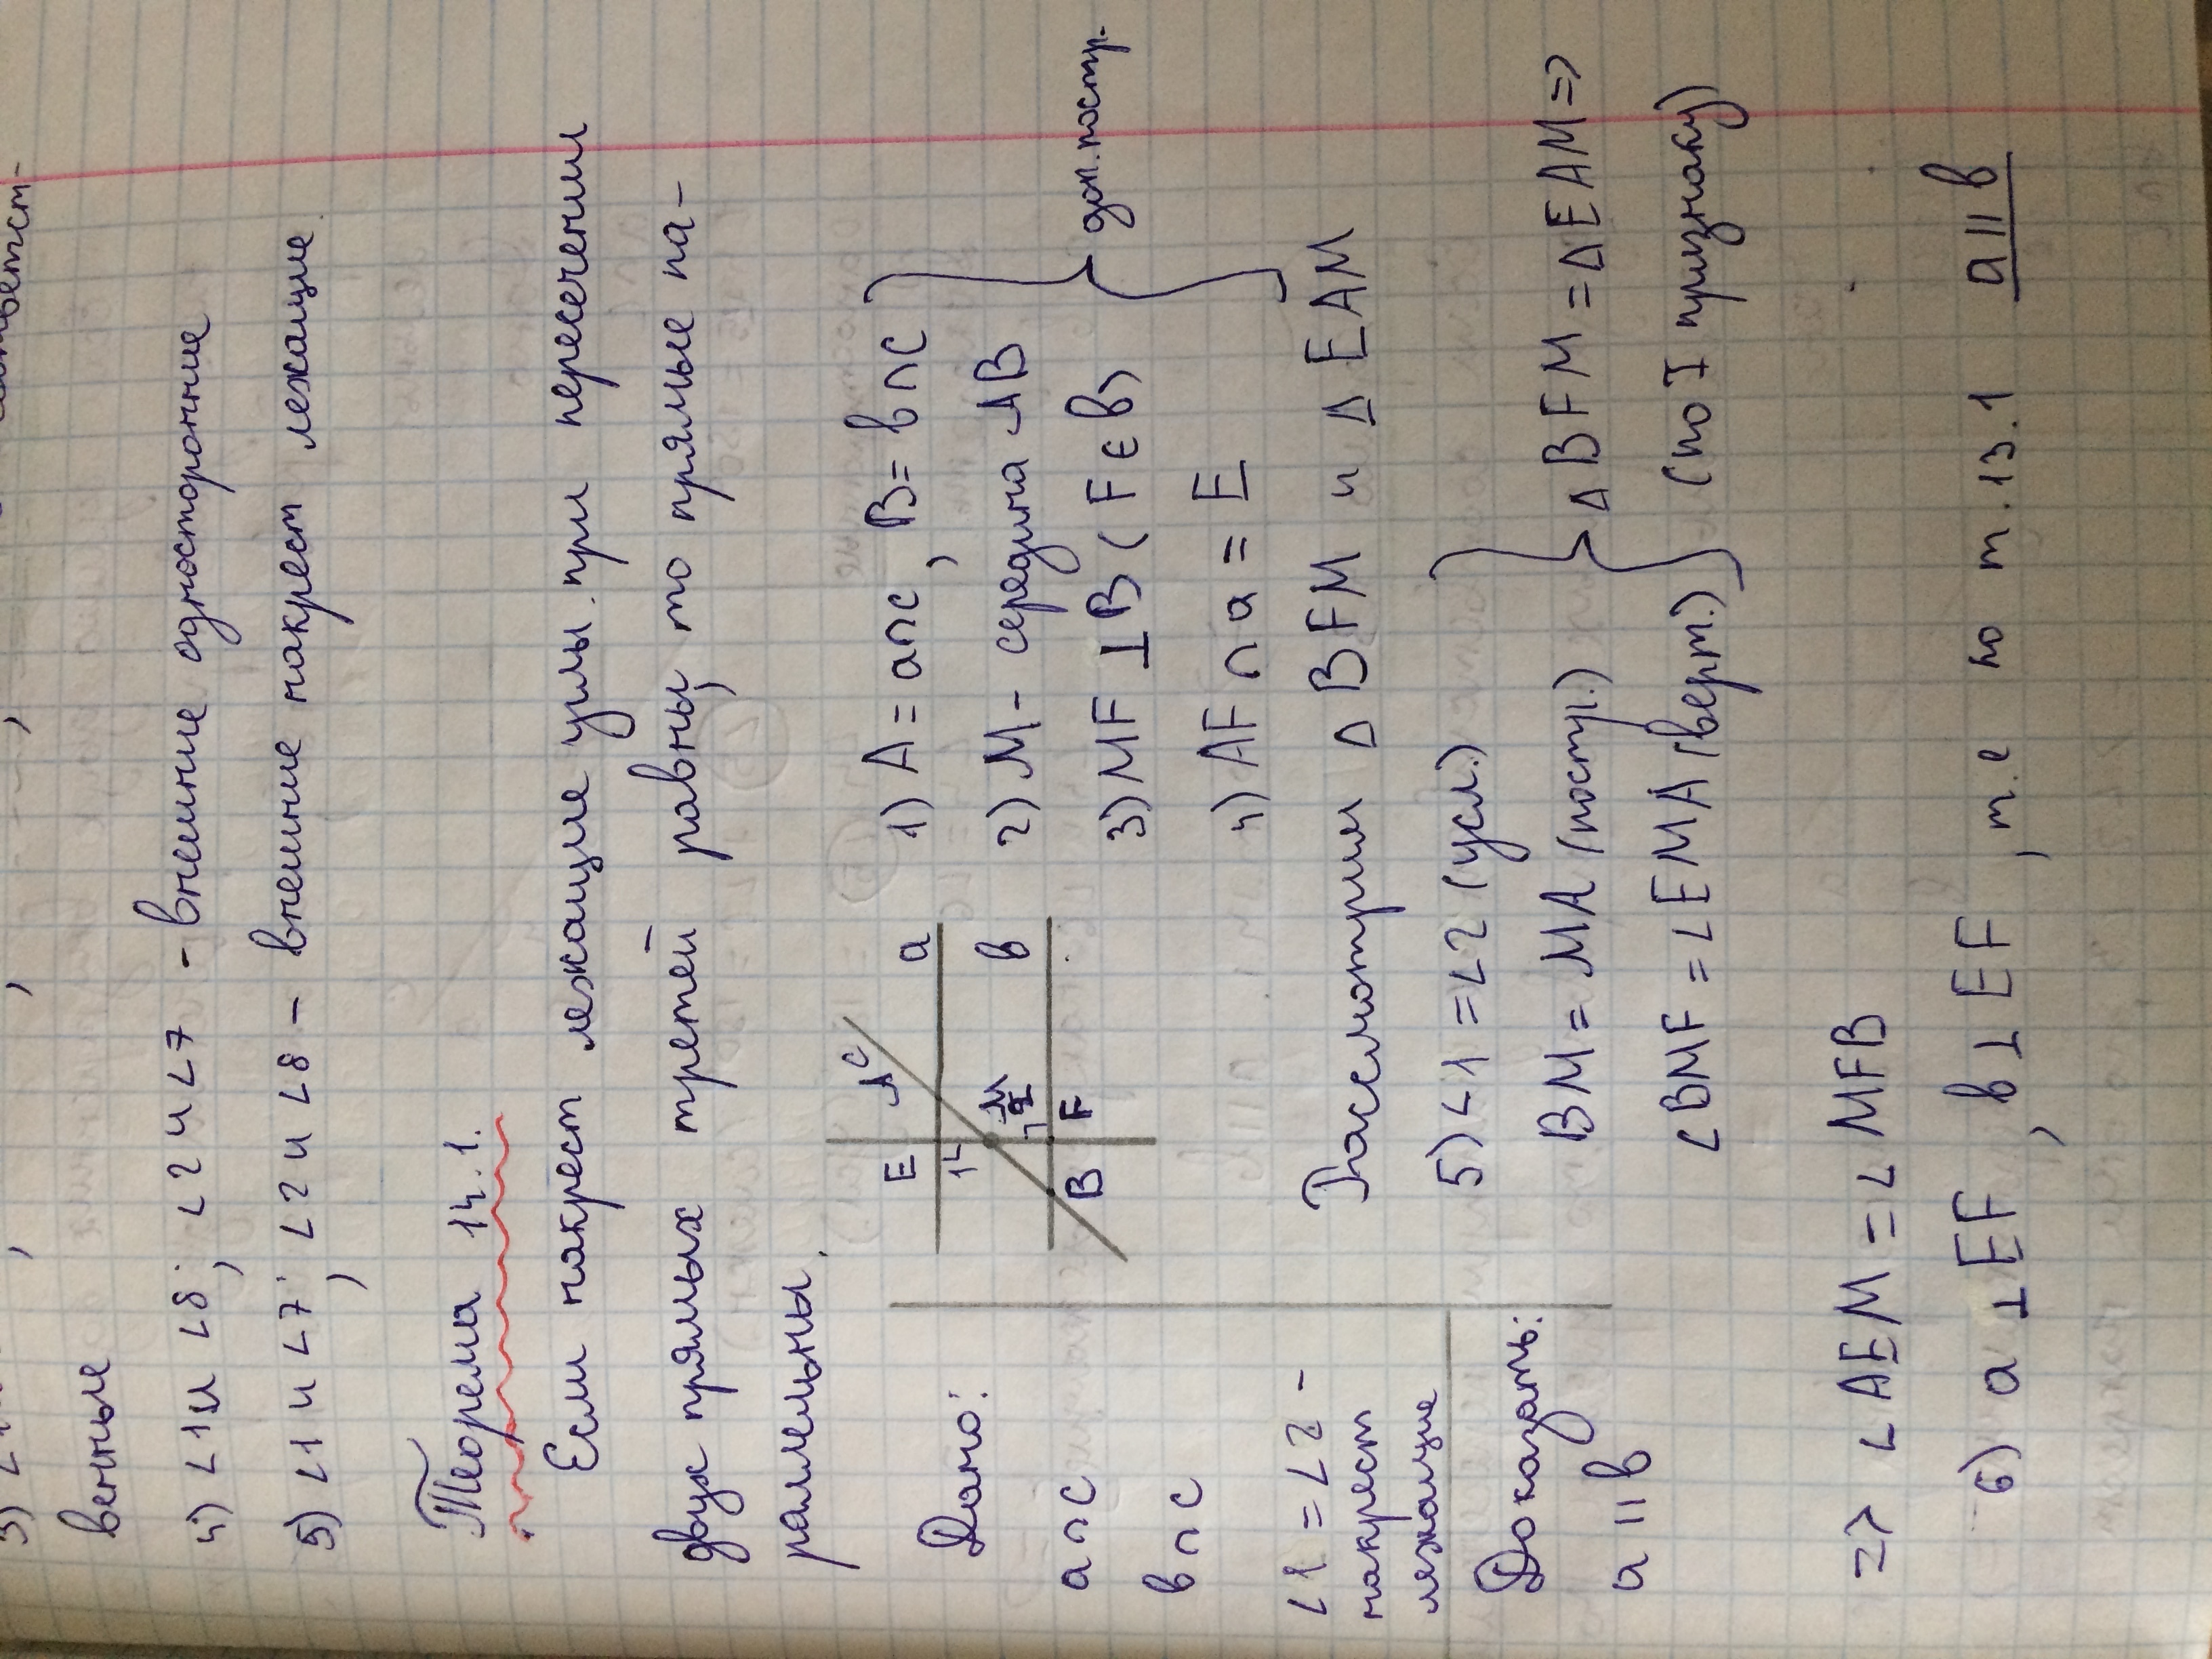 венные
4) ∠1 и ∠8; ∠2 и ∠7 - внешние односторонние
5) ∠1 и ∠7; ∠2 и ∠8 - внешние накрест лежащие
Теорема 14.1.
Если накрест лежащие углы при пересечении
двух прямых третей равны, то прямые па-
ралельны.
Дано:
a∩c
в∩c
∠1 = ∠2 -
накрест
лежащие
Доказать:
a || в
E A c a
1 M в
2
B F
1) A = a∩c, B = в∩c
2) M - середина AB
3) MF ⊥ B (F ∈ в)
4) AF ∩ a = E
доп. постр.
Рассмотрим Δ BFM и Δ EAM
5) ∠1 = ∠2 (усл.)
BM = MA (постр.)
∠BMF = ∠EMA (верт.)
Δ BFM = Δ EAM =>
(по I признаку)
=> ∠AEM = ∠MFB
6) a ⊥ EF, в ⊥ EF, т.е по т.13.1 a || в